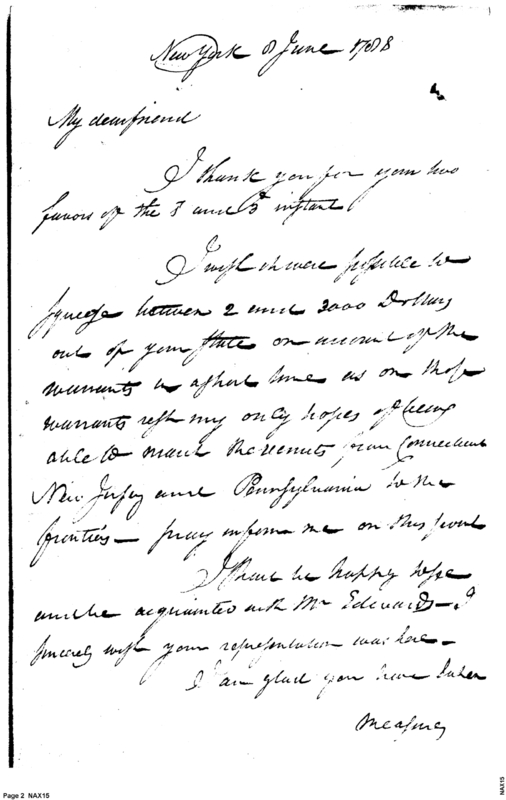 New York 8 June 1788
My dear friend
I thank you for your two
favors of the 3 and 5th instant
I wish it were possible to
squeeze between 2 and 3000 Dollars
out of your State on account of the
warrants in a short time as on those
warrants rest my only hopes of being
able to march the recruits from Connecticut
New Jersey and Pennsylvania to the
frontiers — pray inform me on this point
I shall be happy to see
and be acquainted with Mr Edwards — I
sincerely wish your representation was here —
I am glad you have taken
measures
Page 2 NAX15
NAX15